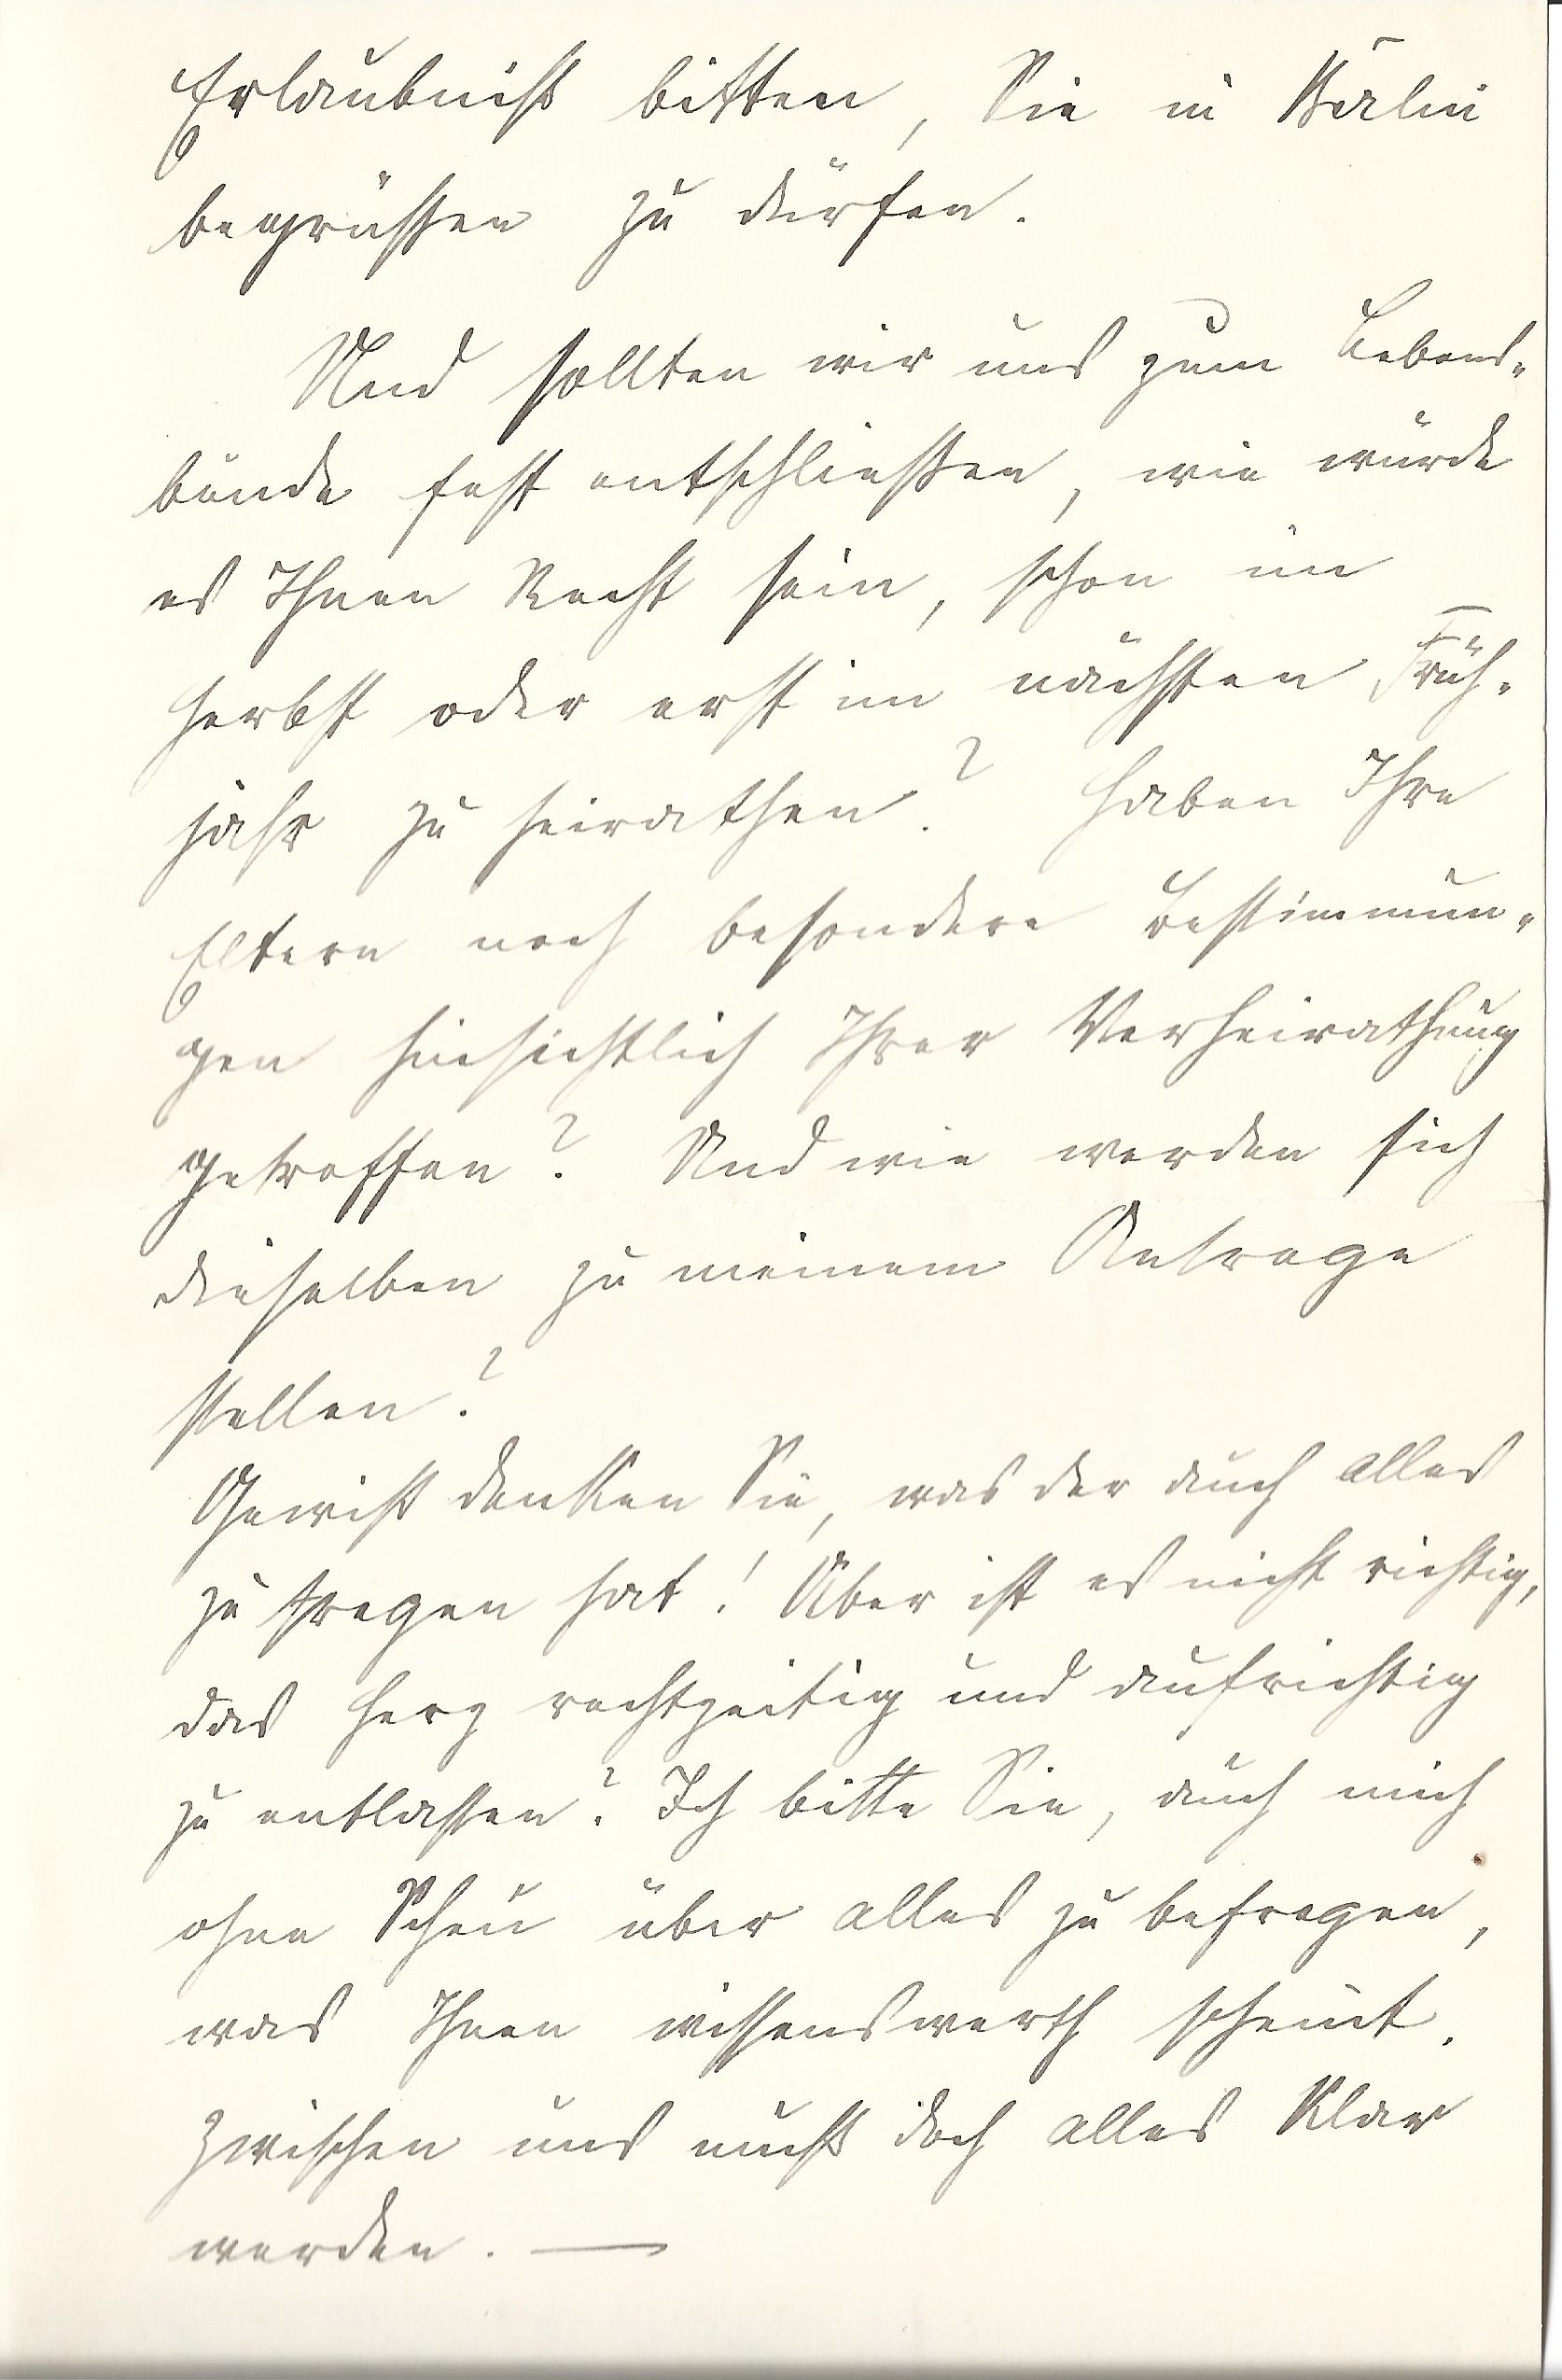 Erlaubniß bitten, Sie in Berlin
begrüßen zu dürfen.
Und sollten wir uns zum Lebens-
bunde fest entschließen, wie würde
es Ihnen Recht sein, schon im
Herbst oder erst im nächsten Früh-
jahr zu heirathen? Haben Ihre
Eltern noch besondere Bestimmun-
gen hinsichtlich Ihrer Verheirathung
getroffen? Und wie werden sich
dieselben zu meinem Antrage
stellen?
Gewiß denken Sie, was der auch alles
zu fragen hat! Aber ist es nicht richtig,
das Herz rechtzeitig und aufrichtig
zu entlasten? Ich bitte Sie, auch mich
ohne Scheu über alles zu befragen,
was Ihnen wissenswerth scheint.
Zwischen uns muß doch alles klar
werden. —